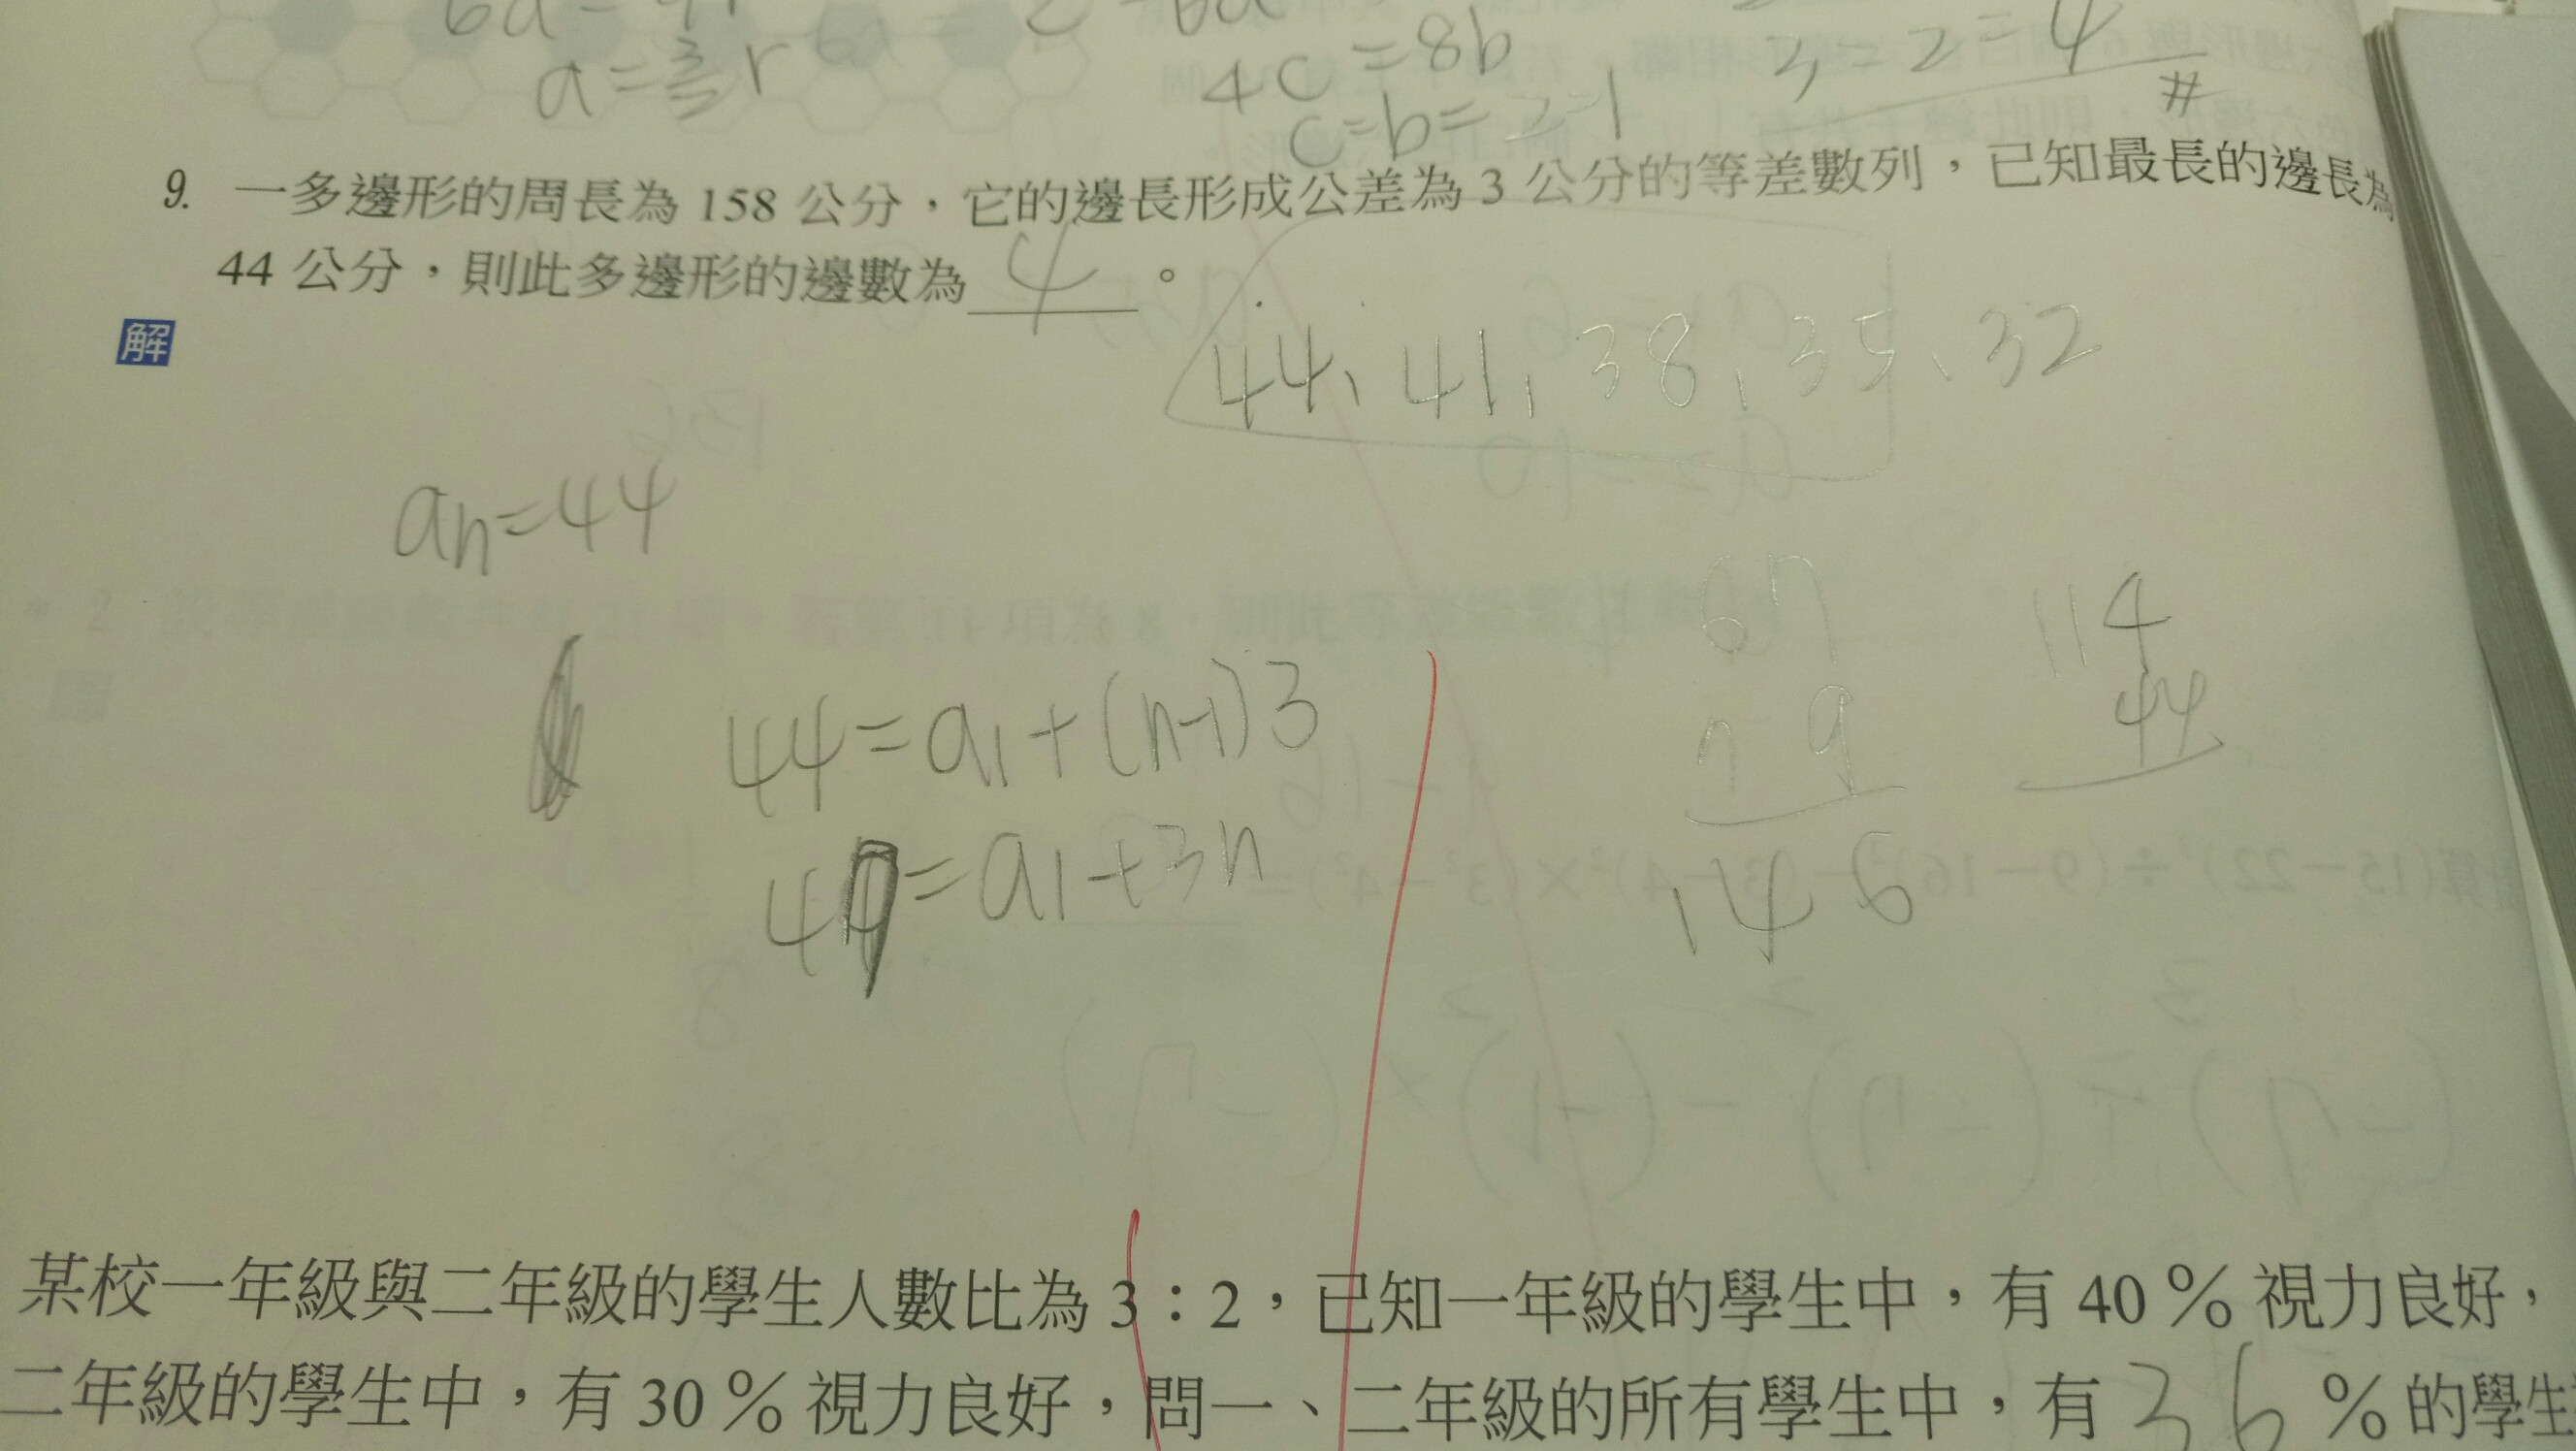 a = 3/2 r
4c = 8b
3 = 2 = 4
#
c = b = 2 = 1
9. 一多邊形的周長為 158 公分，它的邊長形成公差為 3 公分的等差數列，已知最長的邊長為
44 公分，則此多邊形的邊數為 4 。
解
44、41、38、35、32
an = 44
67
79
146
114
44
44 = a1 + (n-1)3
47 = a1 + 3n
某校一年級與二年級的學生人數比為 3：2，已知一年級的學生中，有 40 % 視力良好，
二年級的學生中，有 30 % 視力良好，問一、二年級的所有學生中，有 36 % 的學生